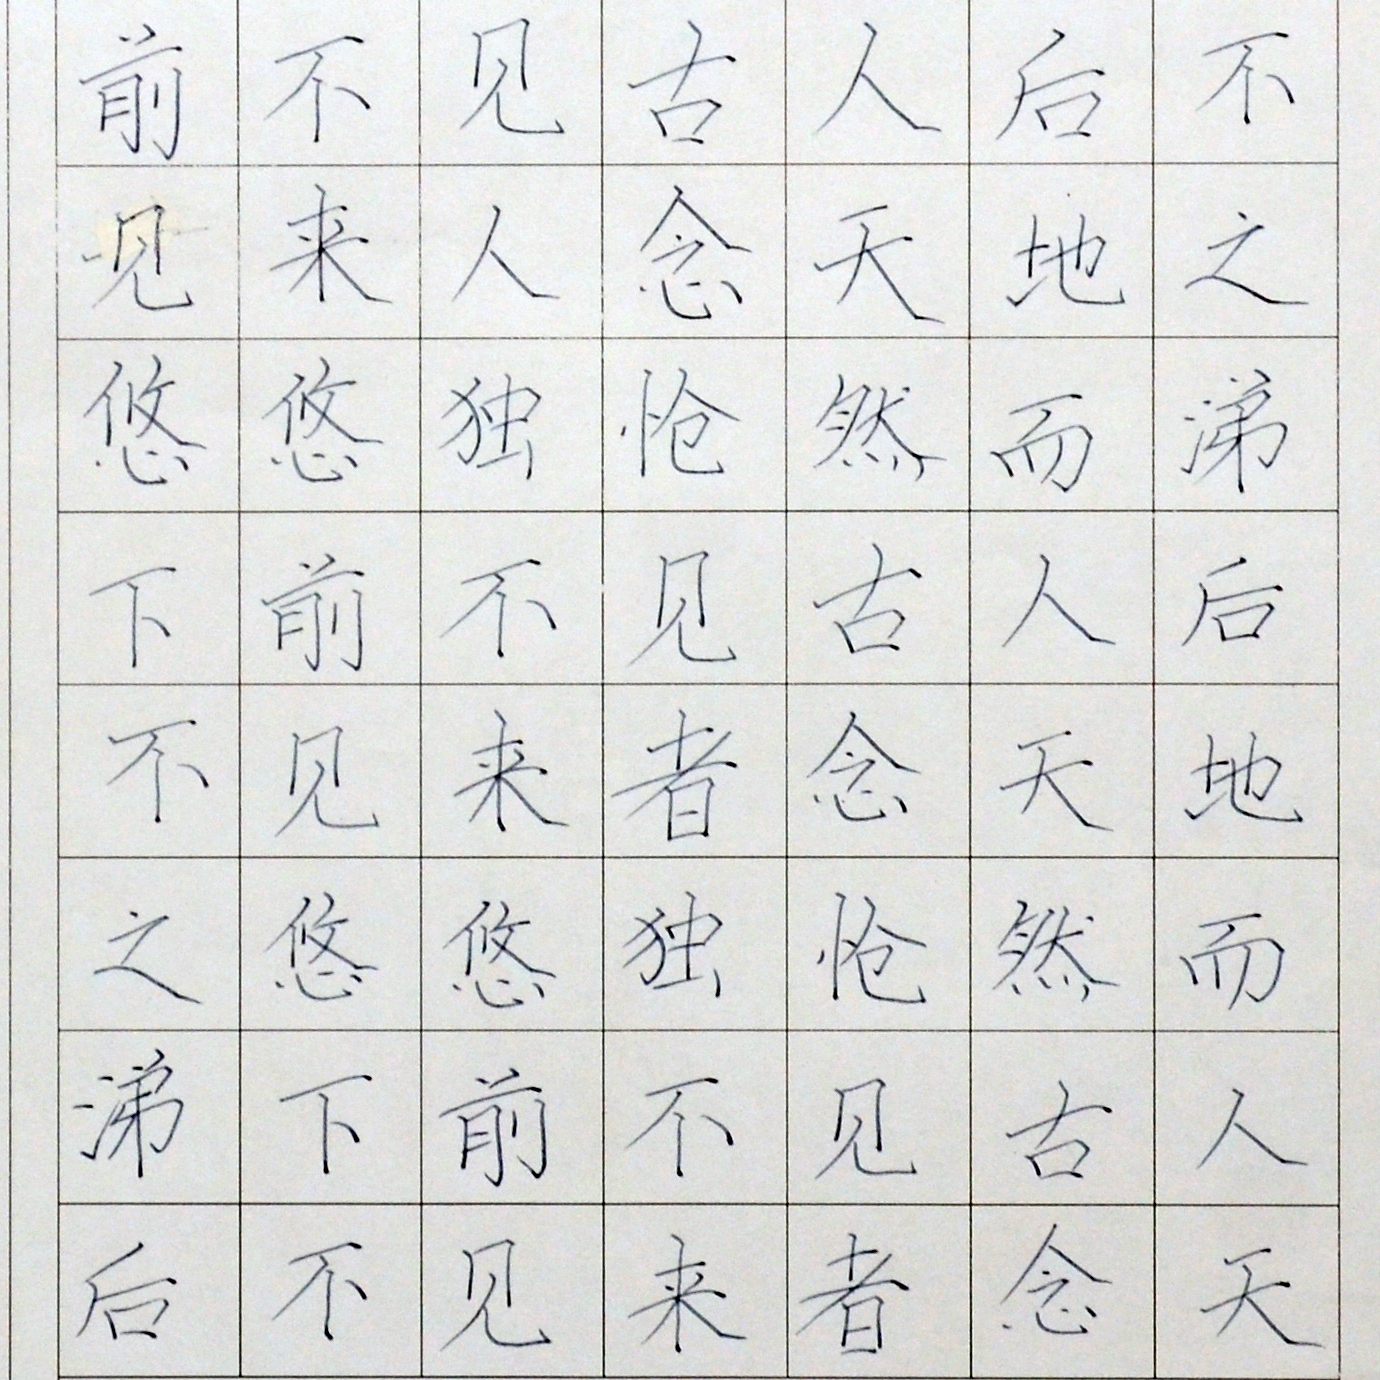 前不见古人后不
见来人念天地之
悠悠独怆然而涕
下前不见古人后
不见来者念天地
之悠悠独怆然而
涕下前不见古人
后不见来者念天